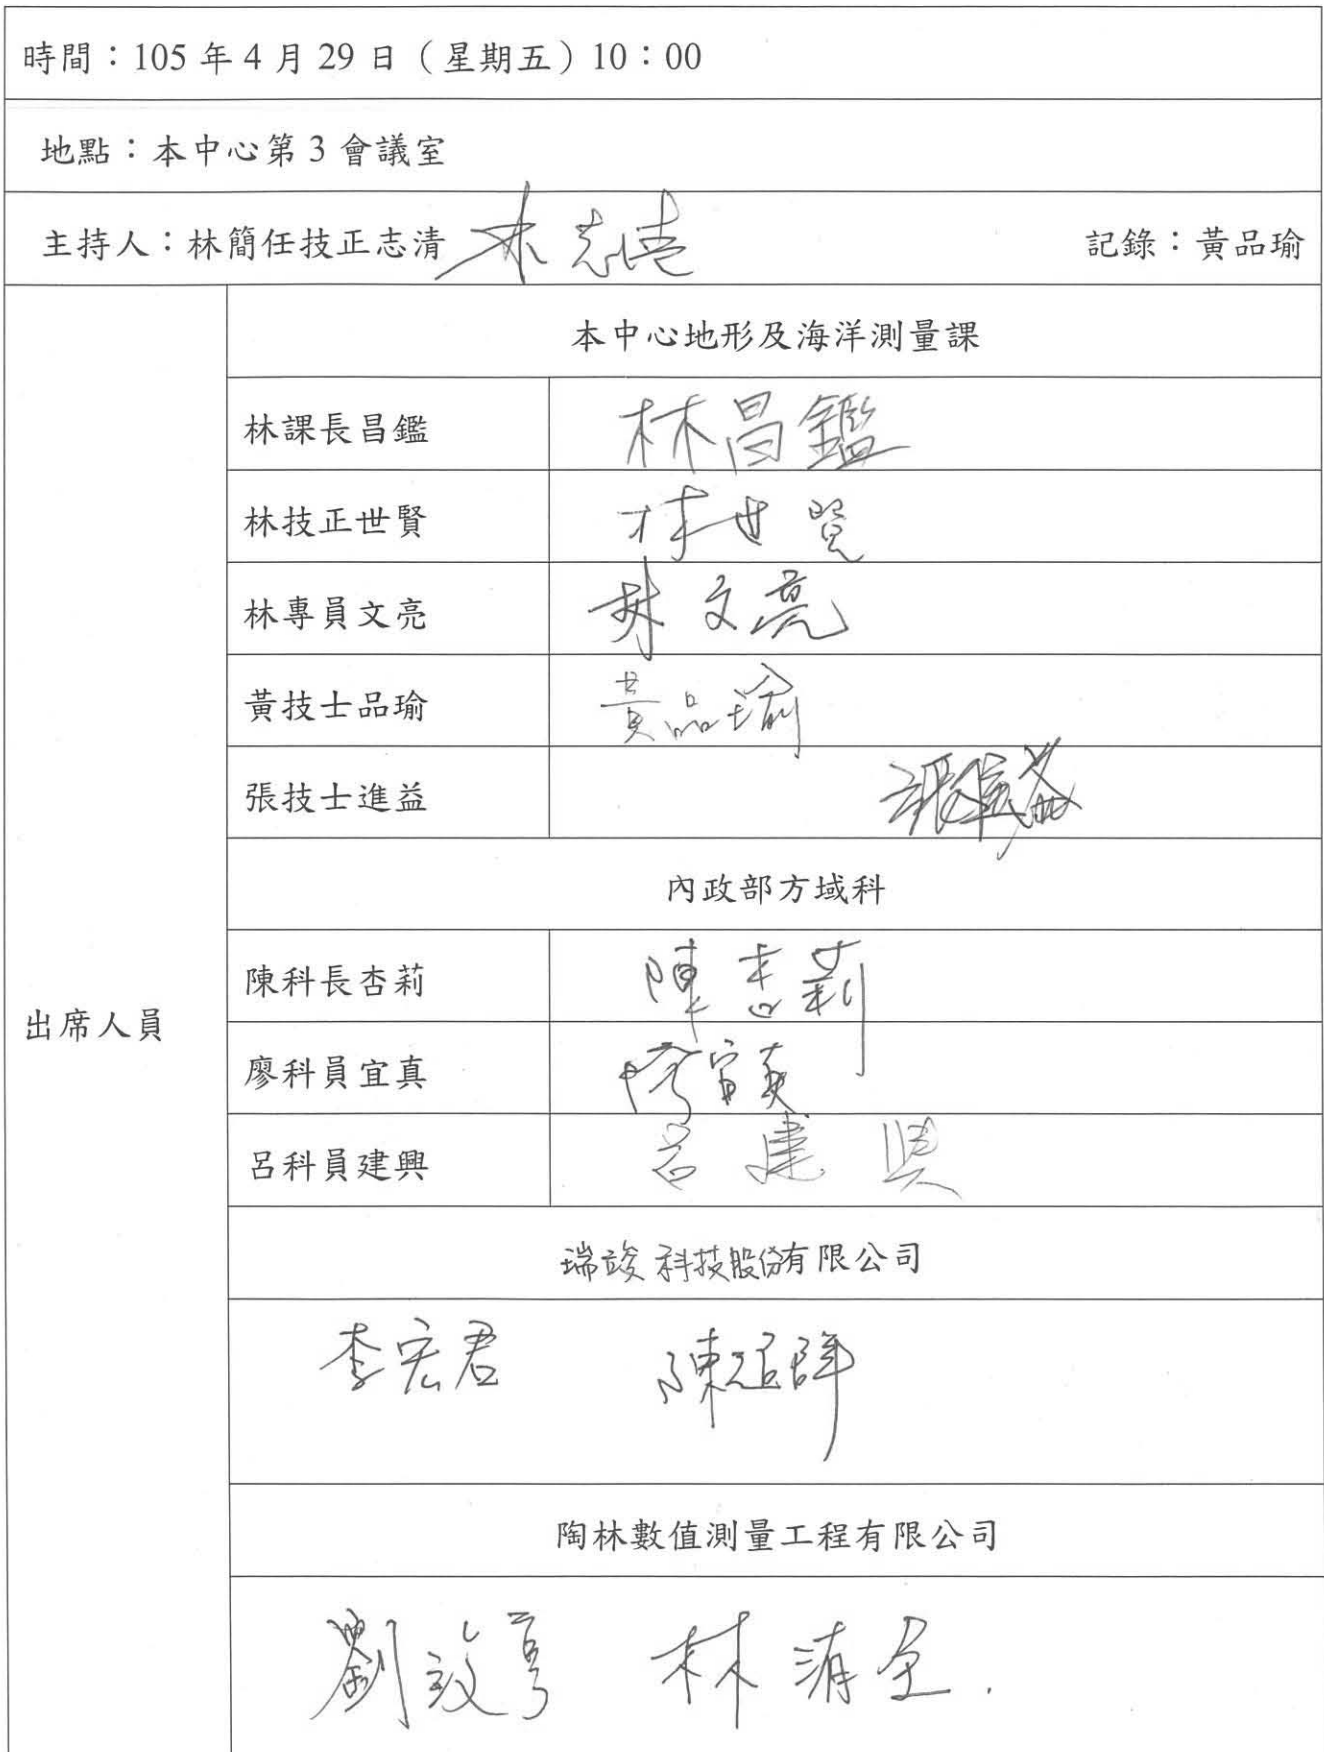 時間：105 年 4 月 29 日（星期五）10：00
地點：本中心第 3 會議室
主持人：林簡任技正志清 林志清 記錄：黃品瑜
本中心地形及海洋測量課
林課長昌鑑 林昌鑑
林技正世賢 林世賢
林專員文亮 林文亮
黃技士品瑜 黃品瑜
張技士進益 張進益
內政部方域科
陳科長杏莉 陳杏莉
出席人員
廖科員宜真 廖宜真
呂科員建興 呂建興
瑞竣科技股份有限公司
李宏君 陳冠群
陶林數值測量工程有限公司
劉 林清